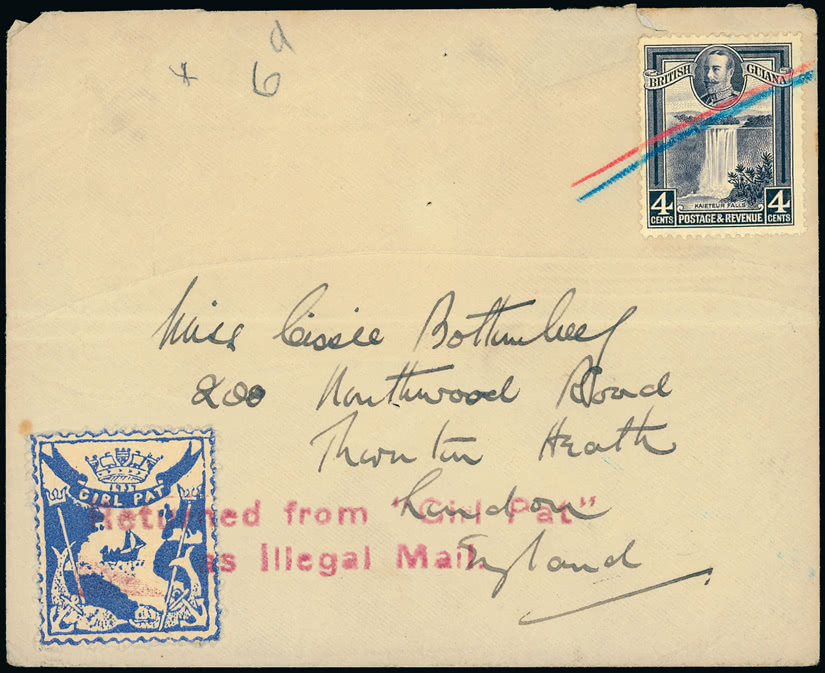 * 6d
BRITISH GUIANA
KAIETEUR FALLS
4 CENTS POSTAGE & REVENUE 4 CENTS
Miss Cissie Bottomley
200 Northwood Road
Thornton Heath
London
England
1937
GIRL PAT
Returned from "Girl Pat"
as Illegal Mail.